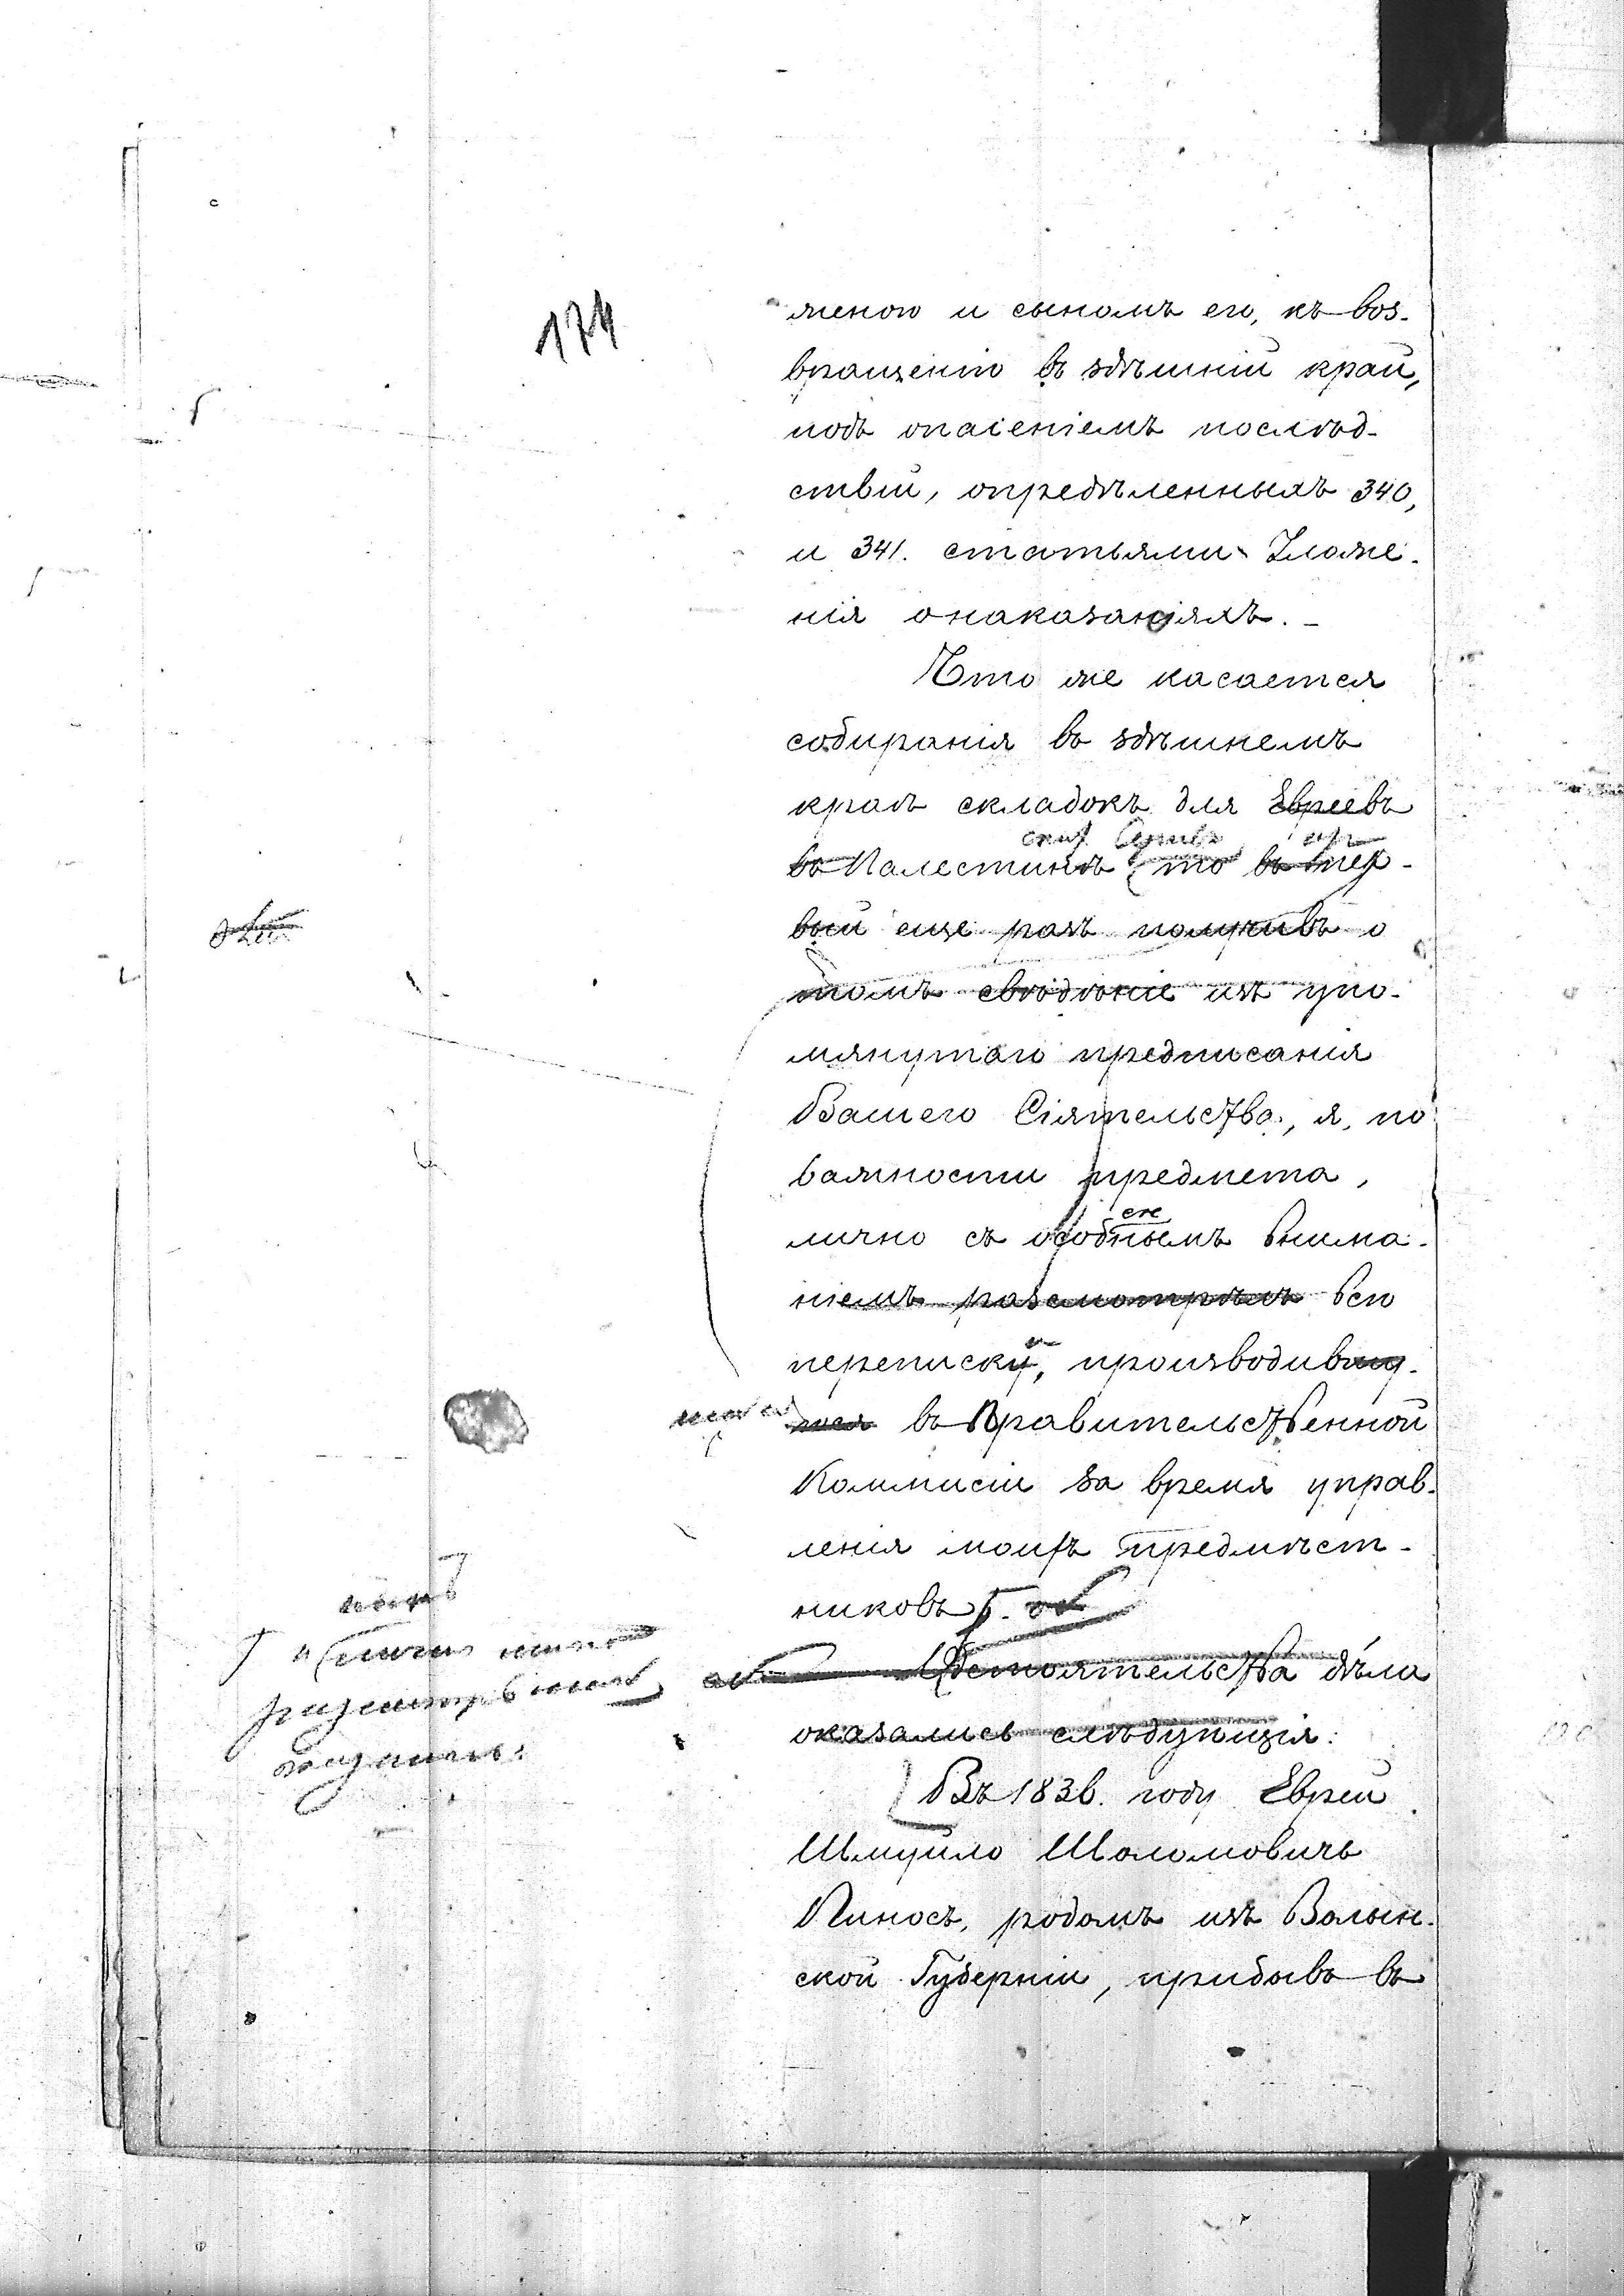 174
женою и сыномъ его, къ воз-
вращенію въ здѣшній край,
подъ опасеніемъ послѣд-
ствій, опредѣленныхъ 340,
и 341. статьями Уложе-
нія о наказаніяхъ.
Что же касается
собиранія въ здѣшнемъ
краѣ складокъ для Евреевъ
въ Палестинѣ то въ пер-
вый еще разъ получивъ о
томъ свѣдѣніе изъ упо-
мянутаго предписанія
Вашего Сіятельства, я, по
важности предмета,
лично съ особнымъ внима-
ніемъ разсмотрѣлъ всю
переписку, производившу-
юся въ Правительственной
Коммисіи за время управ-
ленія моихъ предмѣст-
никовъ
Обстоятельства дѣла
оказались слѣдующія:
Въ 1836. году Еврей
Шмуйло Шоломовичъ
Пиносъ, родомъ изъ Волын-
ской Губерніи, прибывъ въ